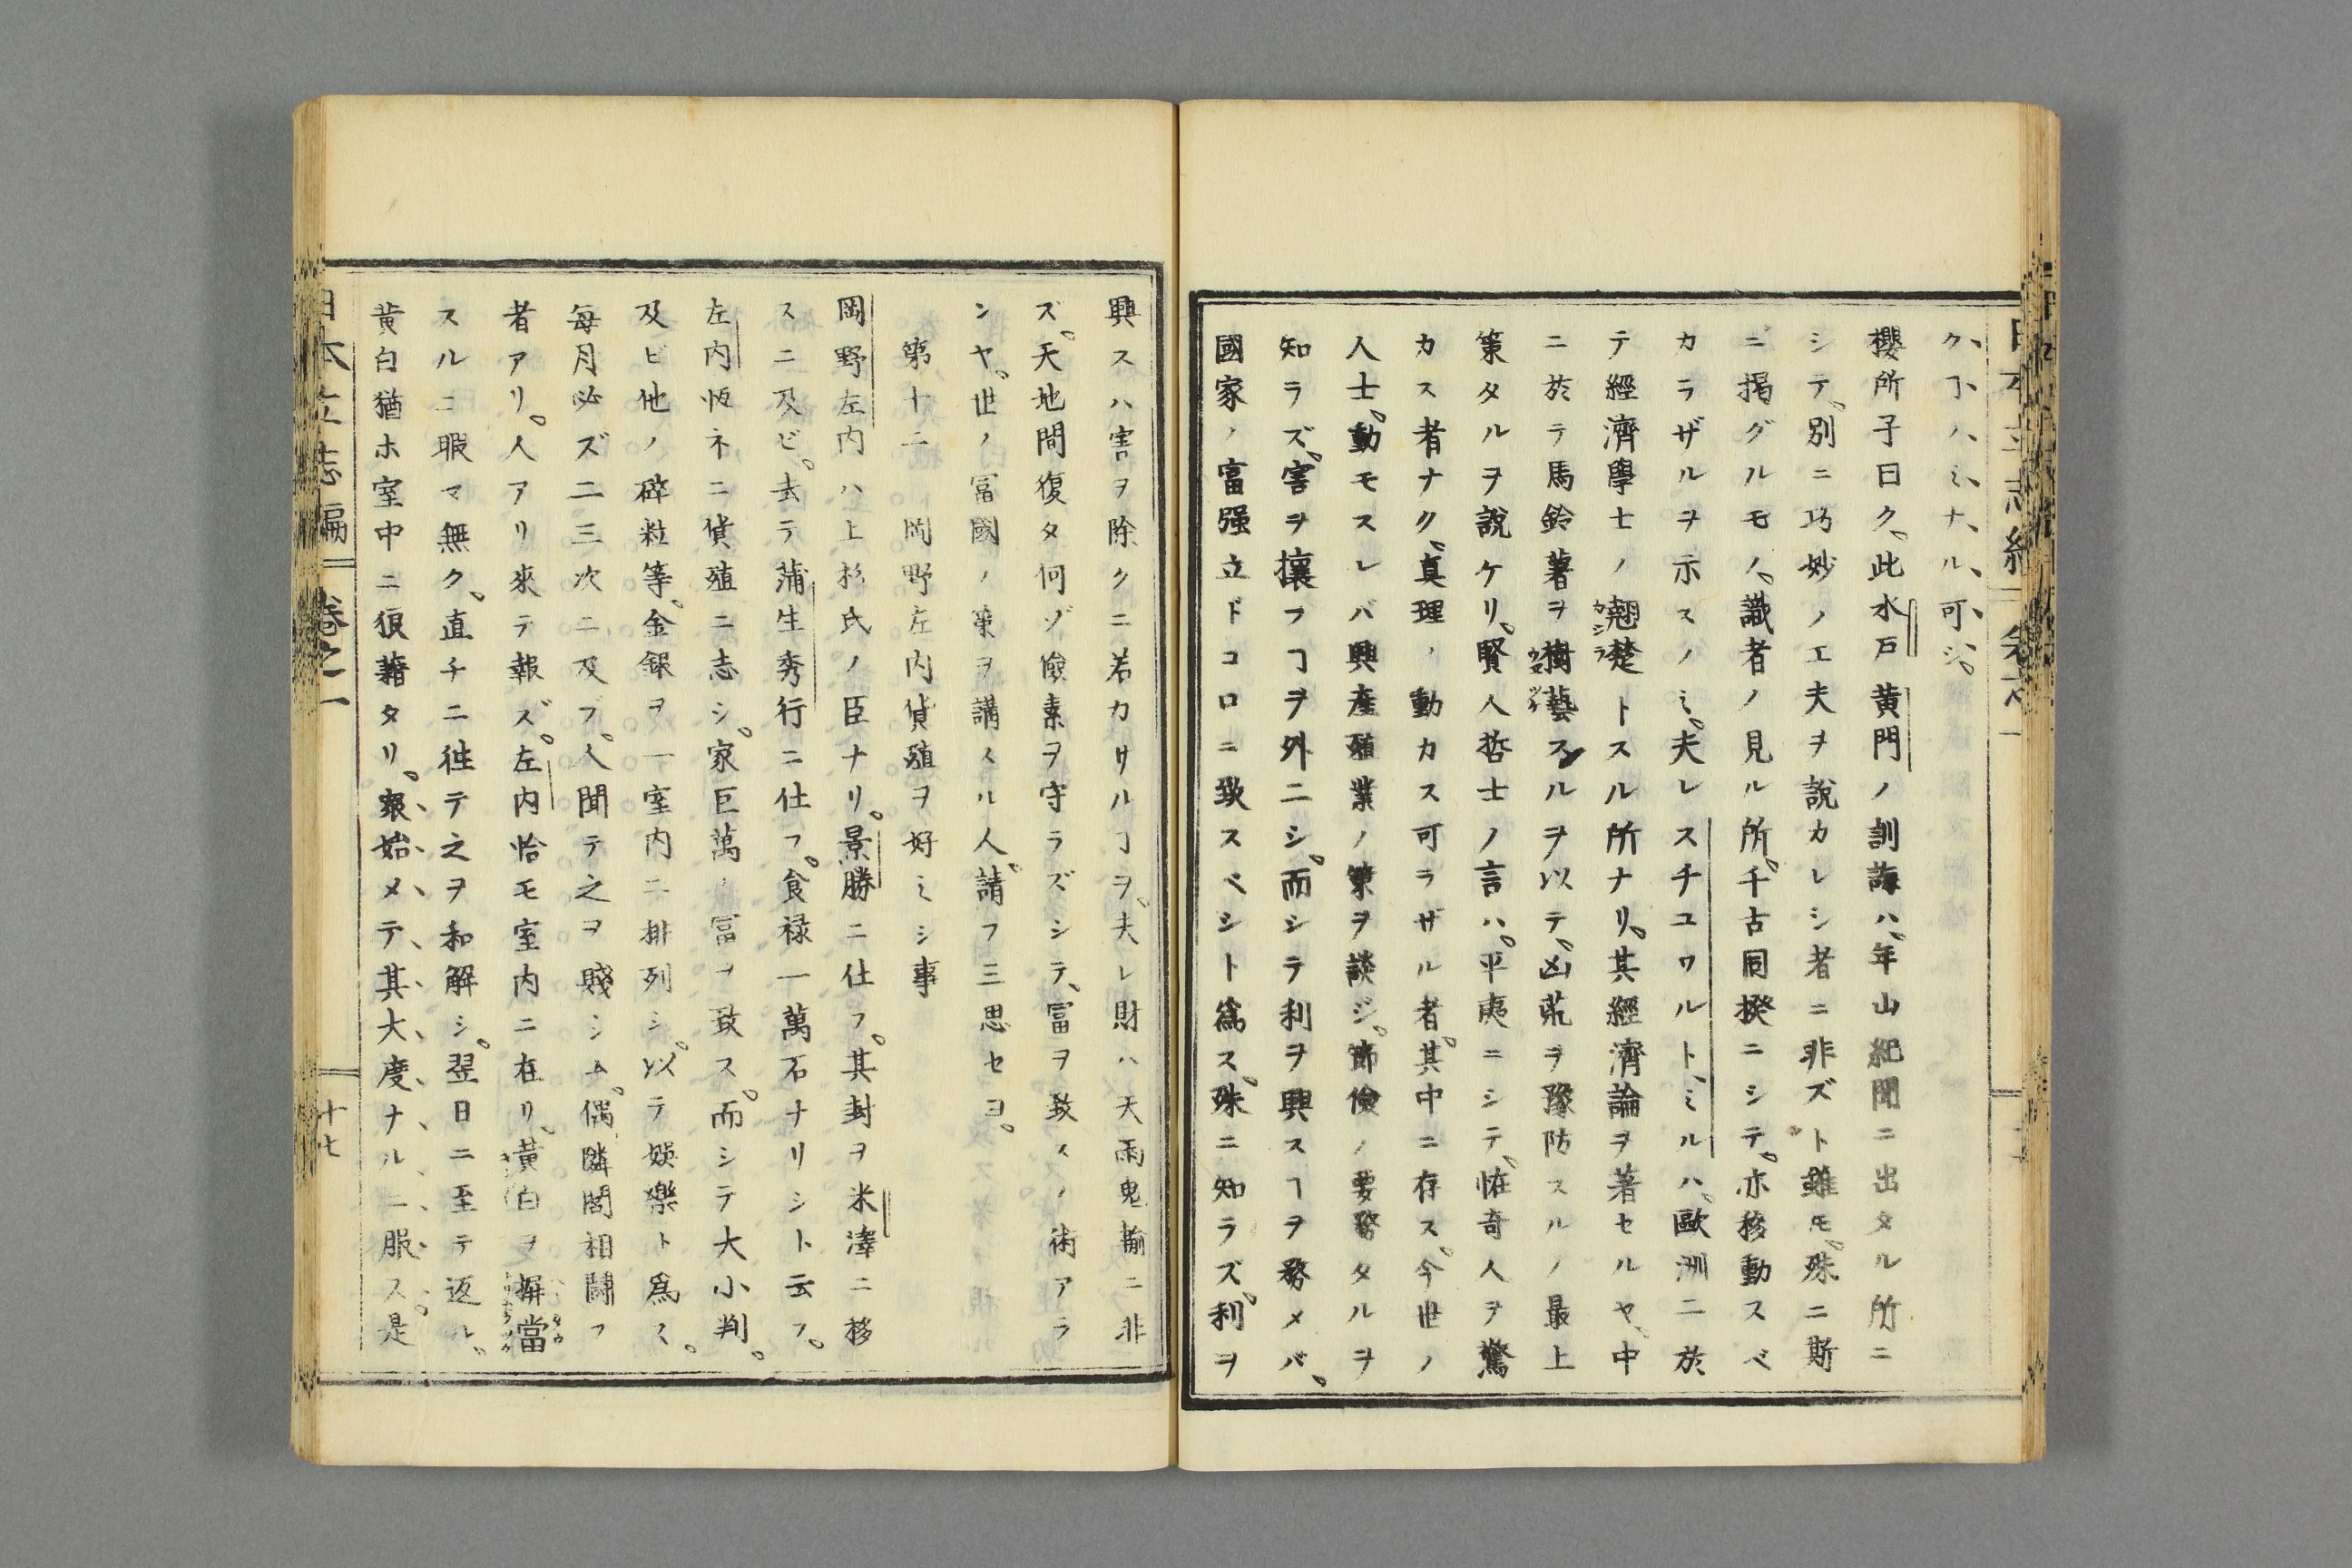 クヿハミナル可シ。
櫻所子曰ク、此水戸黄門ノ訓誨ハ、年山紀聞ニ出タル所ニ
シテ、別ニ巧妙ノ工夫ヲ說カレシ者ニ非ズト雖モ、殊ニ斯
ニ掲グルモノ、識者ノ見ル所、千古同揆ニシテ、亦移動スベ
カラザルヲ示スノミ、夫レスチユワルト、ミルハ、歐洲ニ於
テ經濟學士ノ翹楚トスル所ナリ、其經濟論ヲ著セルヤ、中
ニ於テ馬鈴薯ヲ樹藝スルヲ以テ、凶荒ヲ豫防スルノ最上
策タルヲ說ケリ、賢人哲士ノ言ハ、平夷ニシテ、恠奇人ヲ驚
カス者ナク、真理ノ動カス可ラザル者、其中ニ存ス、今世ノ
人士、動モスレバ興產殖業ノ策ヲ談ジ、節儉ノ要務タルヲ
知ラズ、害ヲ攘フヿヲ外ニシ、而シテ利ヲ興スヿヲ務メバ、
國家ノ富强立ドコロニ致スベシト為ス、殊ニ知ラズ、利ヲ
日本立志編 卷之一
興スハ害ヲ除クニ若カサルヿヲ、夫レ財ハ天雨鬼輸ニ非
ズ、天地間復タ何ゾ儉素ヲ守ラズシテ、富ヲ致スノ術アラ
ンヤ、世ノ冨國ノ策ヲ講スル人、請フ三思セヨ。
第十二 岡野左内貨殖ヲ好ミシ事
岡野左内ハ上杉氏ノ臣ナリ、景勝ニ仕フ、其封ヲ米澤ニ移
スニ及ビ、去テ蒲生秀行ニ仕フ、食禄一萬石ナリシト云フ。
左内恆ネニ貨殖ニ志シ、家巨萬ノ冨ヲ致ス、而シテ大小判。
及ビ他ノ碎粒等、金銀ヲ一室内ニ排列シ、以テ娯樂ト爲ス。
每月必ズ二三次ニ及ブ、人聞テ之ヲ賤シム、偶隣閭相鬪フ
者アリ、人アリ來テ報ズ、左内恰モ室内ニ在リ、黄白ヲ摒當
スルニ暇マ無ク、直チニ徃テ之ヲ和解シ、翌日ニ至テ返ル、
黄白猶ホ室中ニ狼藉タリ、衆始メテ、其大度ナルニ服ス、是
日本立志編 卷之一 十七